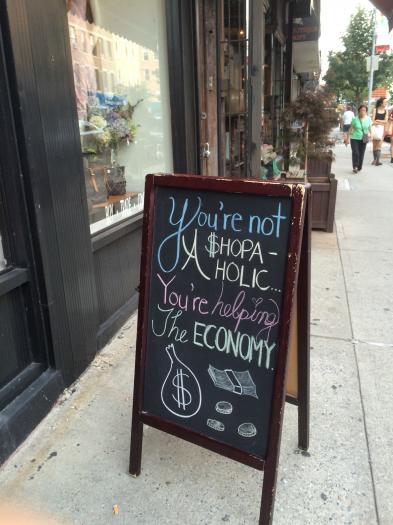 You're not
A $HOPA-
HOLIC...
You're helping
The ECONOMY.
$